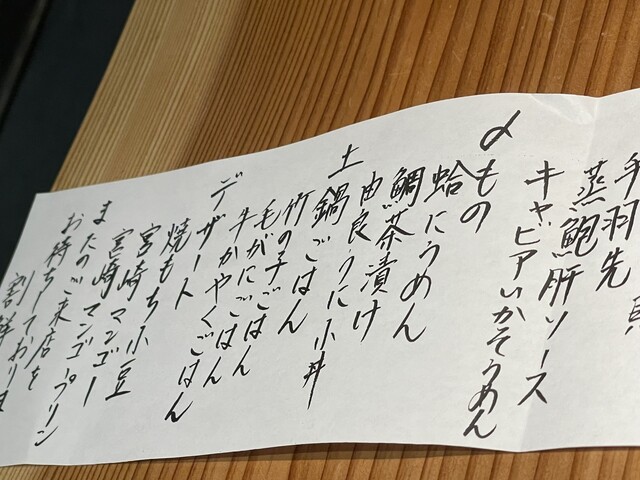 手羽先
蒸鮑肝ソース
キャビアいかそうめん
〆もの
蛤にうめん
鯛茶漬け
由良うに小丼
土鍋ごはん
竹の子ごはん
毛がにごはん
牛かやくごはん
デザート
焼もち小豆
宮崎マンゴー
宮崎マンゴープリン
またのご来店を
お待ちしております
割鮮